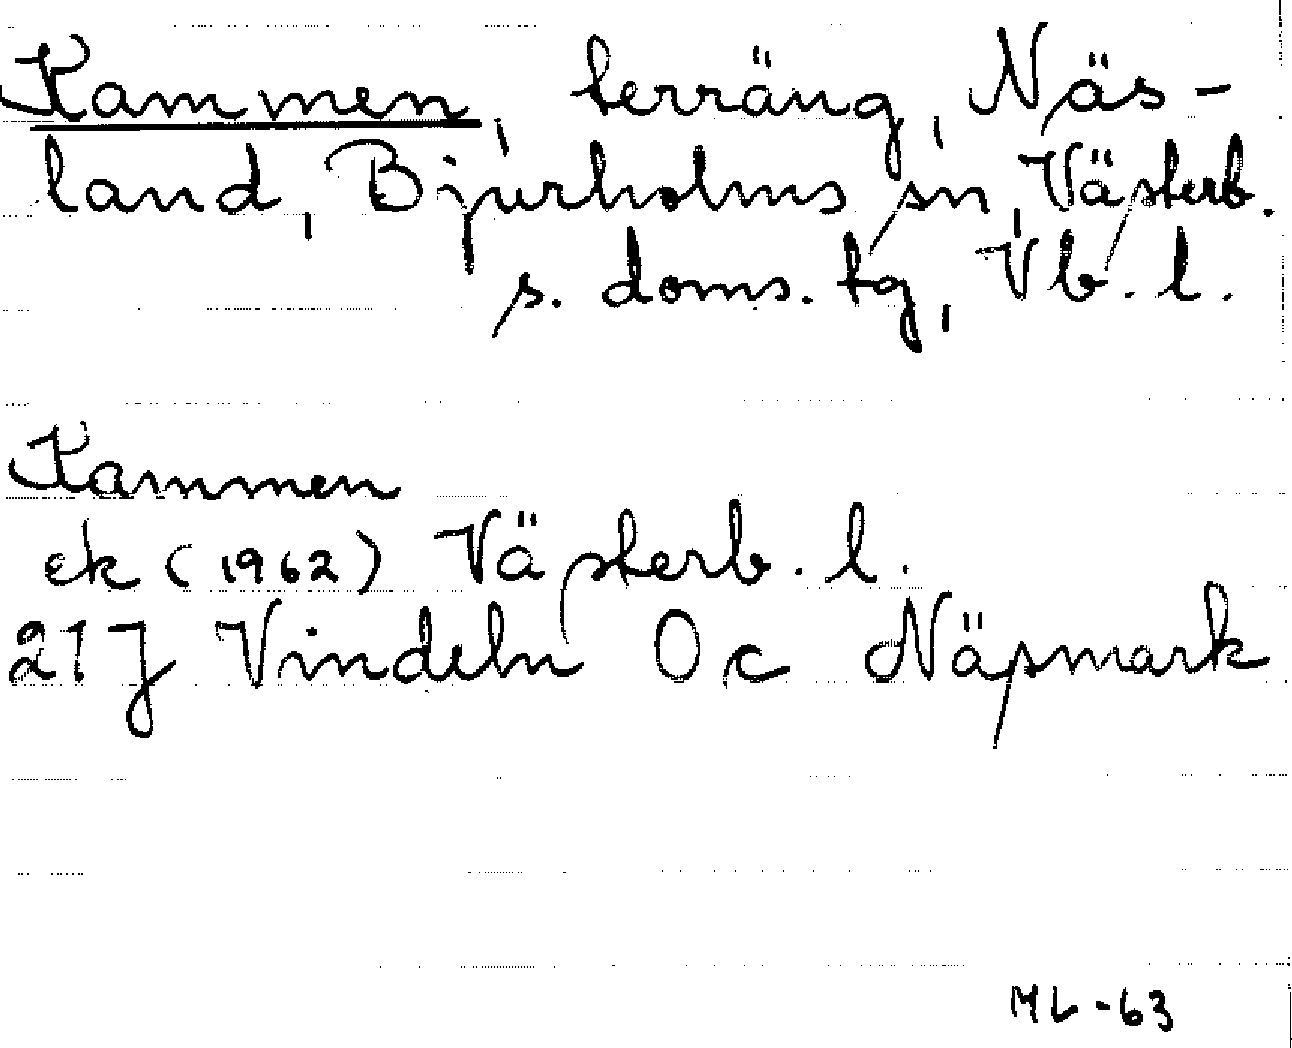 Kammen, terräng, Näs-
land, Bjurholms sn, Västerb.
s. doms. tg, Vb. l.
Kammen
ek (1962) Västerb. l.
21J Vindeln 0c Näsmark
ML-63